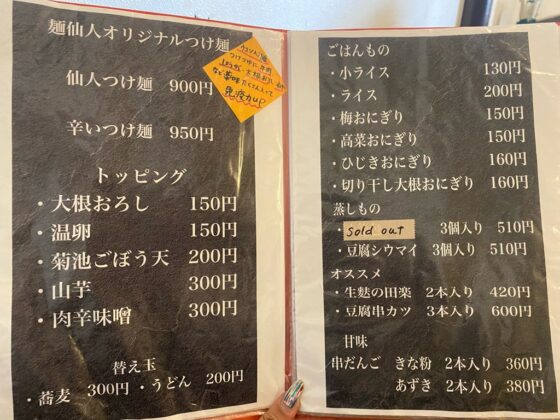 麺仙人オリジナルつけ麺
仙人つけ麺 900円
辛いつけ麺 950円
トッピング
・大根おろし 150円
・温卵 150円
・菊池ごぼう天 200円
・山芋 300円
・肉辛味噌 300円
替え玉
・蕎麦 300円 ・うどん 200円
免疫力up
ごはんもの
・小ライス 130円
・ライス 200円
・梅おにぎり 150円
・高菜おにぎり 150円
・ひじきおにぎり 160円
・切り干し大根おにぎり 160円
蒸しもの
・sold out 3個入り 510円
・豆腐シウマイ 3個入り 510円
オススメ
・生麩の田楽 2本入り 420円
・豆腐串カツ 3本入り 600円
甘味
串だんご きな粉 2本入り 360円
あずき 2本入り 380円